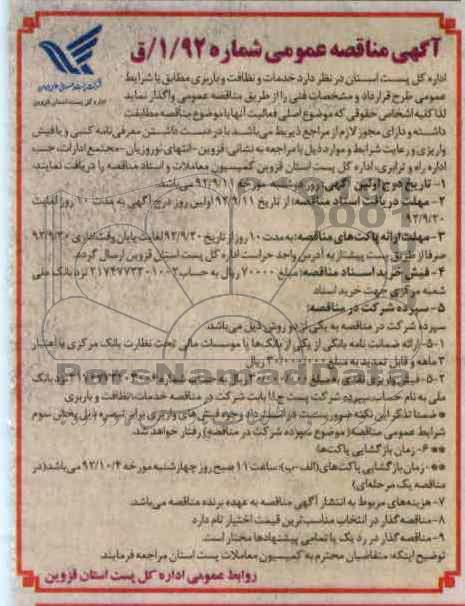 آگهی مناقصه عمومی شماره ۱/۹۲/ق
اداره کل پست استان قزوین
اداره کل پست استان در نظر دارد خدمات و نظافت و باربری مطابق با شرایط
عمومی طرح قرارداد و مشخصات فنی را از طریق مناقصه عمومی واگذار نماید
لذا کلیه اشخاص حقوقی که موضوع اصلی فعالیت آنها با موضوع مناقصه مطابقت
داشته و دارای مجوز لازم از مراجع ذیربط می‌باشند با در دست داشتن معرفی‌نامه کتبی و یا فیش
واریزی و رعایت شرایط و موارد ذیل با مراجعه به نشانی: قزوین - انتهای نوروزیان - مجتمع ادارات، جنب
اداره راه و ترابری، اداره کل پست استان قزوین کمیسیون معاملات و اسناد مناقصه را دریافت نمایند:
۱- تاریخ درج اولین آگهی: روز دوشنبه مورخه ۹۲/۹/۱۱ می‌باشد.
۲- مهلت دریافت اسناد مناقصه: از تاریخ ۹۲/۹/۱۱ اولین روز درج آگهی به مدت ۱۰ روز لغایت
۹۲/۹/۲۰
۳- مهلت ارائه پاکت‌های مناقصه: به مدت ۱۰ روز از تاریخ ۹۲/۹/۲۰ لغایت پایان وقت اداری ۹۲/۹/۳۰
صرفا از طریق پست پیشتاز به آدرس واحد حراست اداره کل پست استان قزوین ارسال گردد.
۴- فیش خرید اسناد مناقصه: مبلغ ۷۰۰۰۰ ریال به حساب ۲۱۷۴۷۷۳۳۰۱۰۰۲ نزد بانک ملی
شعبه مرکزی جهت خرید اسناد
۵- سپرده شرکت در مناقصه:
سپرده شرکت در مناقصه به یکی از دو روش ذیل می‌باشد.
۵-۱- ارائه ضمانت نامه بانکی از یکی از بانک‌ها یا موسسات مالی تحت نظارت بانک مرکزی با اعتبار
۳ ماهه و قابل تمدید به مبلغ ریال
۵-۲- فیش واریز نقدی به مبلغ ریال به حساب شماره نزد بانک
ملی به نام حساب سپرده شرکت پست ج.ا.ا بابت شرکت در مناقصه خدمات، نظافت و باربری
* ضمنا تذکر این نکته ضروریست، در استرداد وجوه فیش‌های واریزی برابر تبصره ذیل بخش سوم
شرایط عمومی مناقصه (موضوع سپرده شرکت در مناقصه) رفتار خواهد شد.
** ۶- زمان بازگشایی پاکت‌ها:
** - زمان بازگشایی پاکت‌های (الف - ب): ساعت ۱۱ صبح روز چهارشنبه مورخه ۹۲/۱۰/۴ می‌باشد (در
مناقصه یک مرحله‌ای)
۷- هزینه‌های مربوط به انتشار آگهی مناقصه به عهده برنده مناقصه می‌باشد.
۸- مناقصه گذار در انتخاب مناسب‌ترین قیمت اختیار تام دارد
۹- مناقصه گذار در رد یک یا تمامی پیشنهادها مختار است.
توضیح اینکه: متقاضیان محترم به کمیسیون معاملات پست استان مراجعه فرمایند.
روابط عمومی اداره کل پست استان قزوین
ParsNamadData